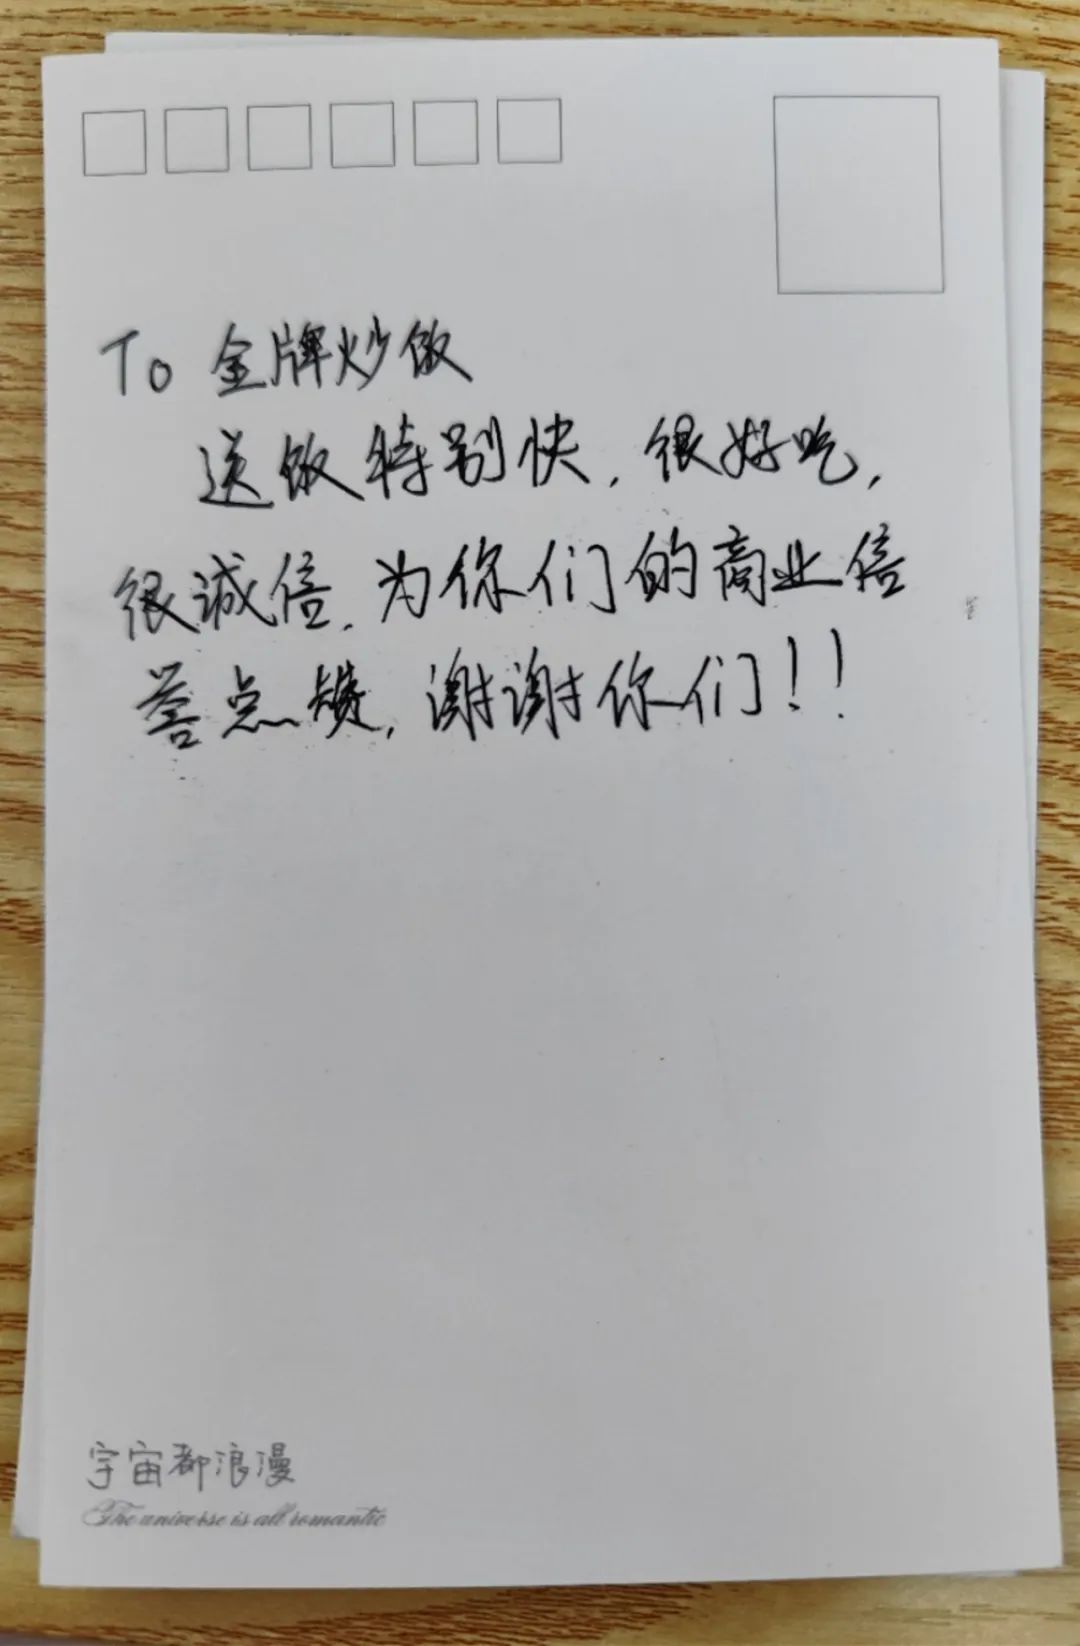 To 金牌炒饭
送饭特别快，很好吃，
很诚信，为你们的商业信
誉点赞，谢谢你们！！
宇宙都浪漫
The universe is all romantic